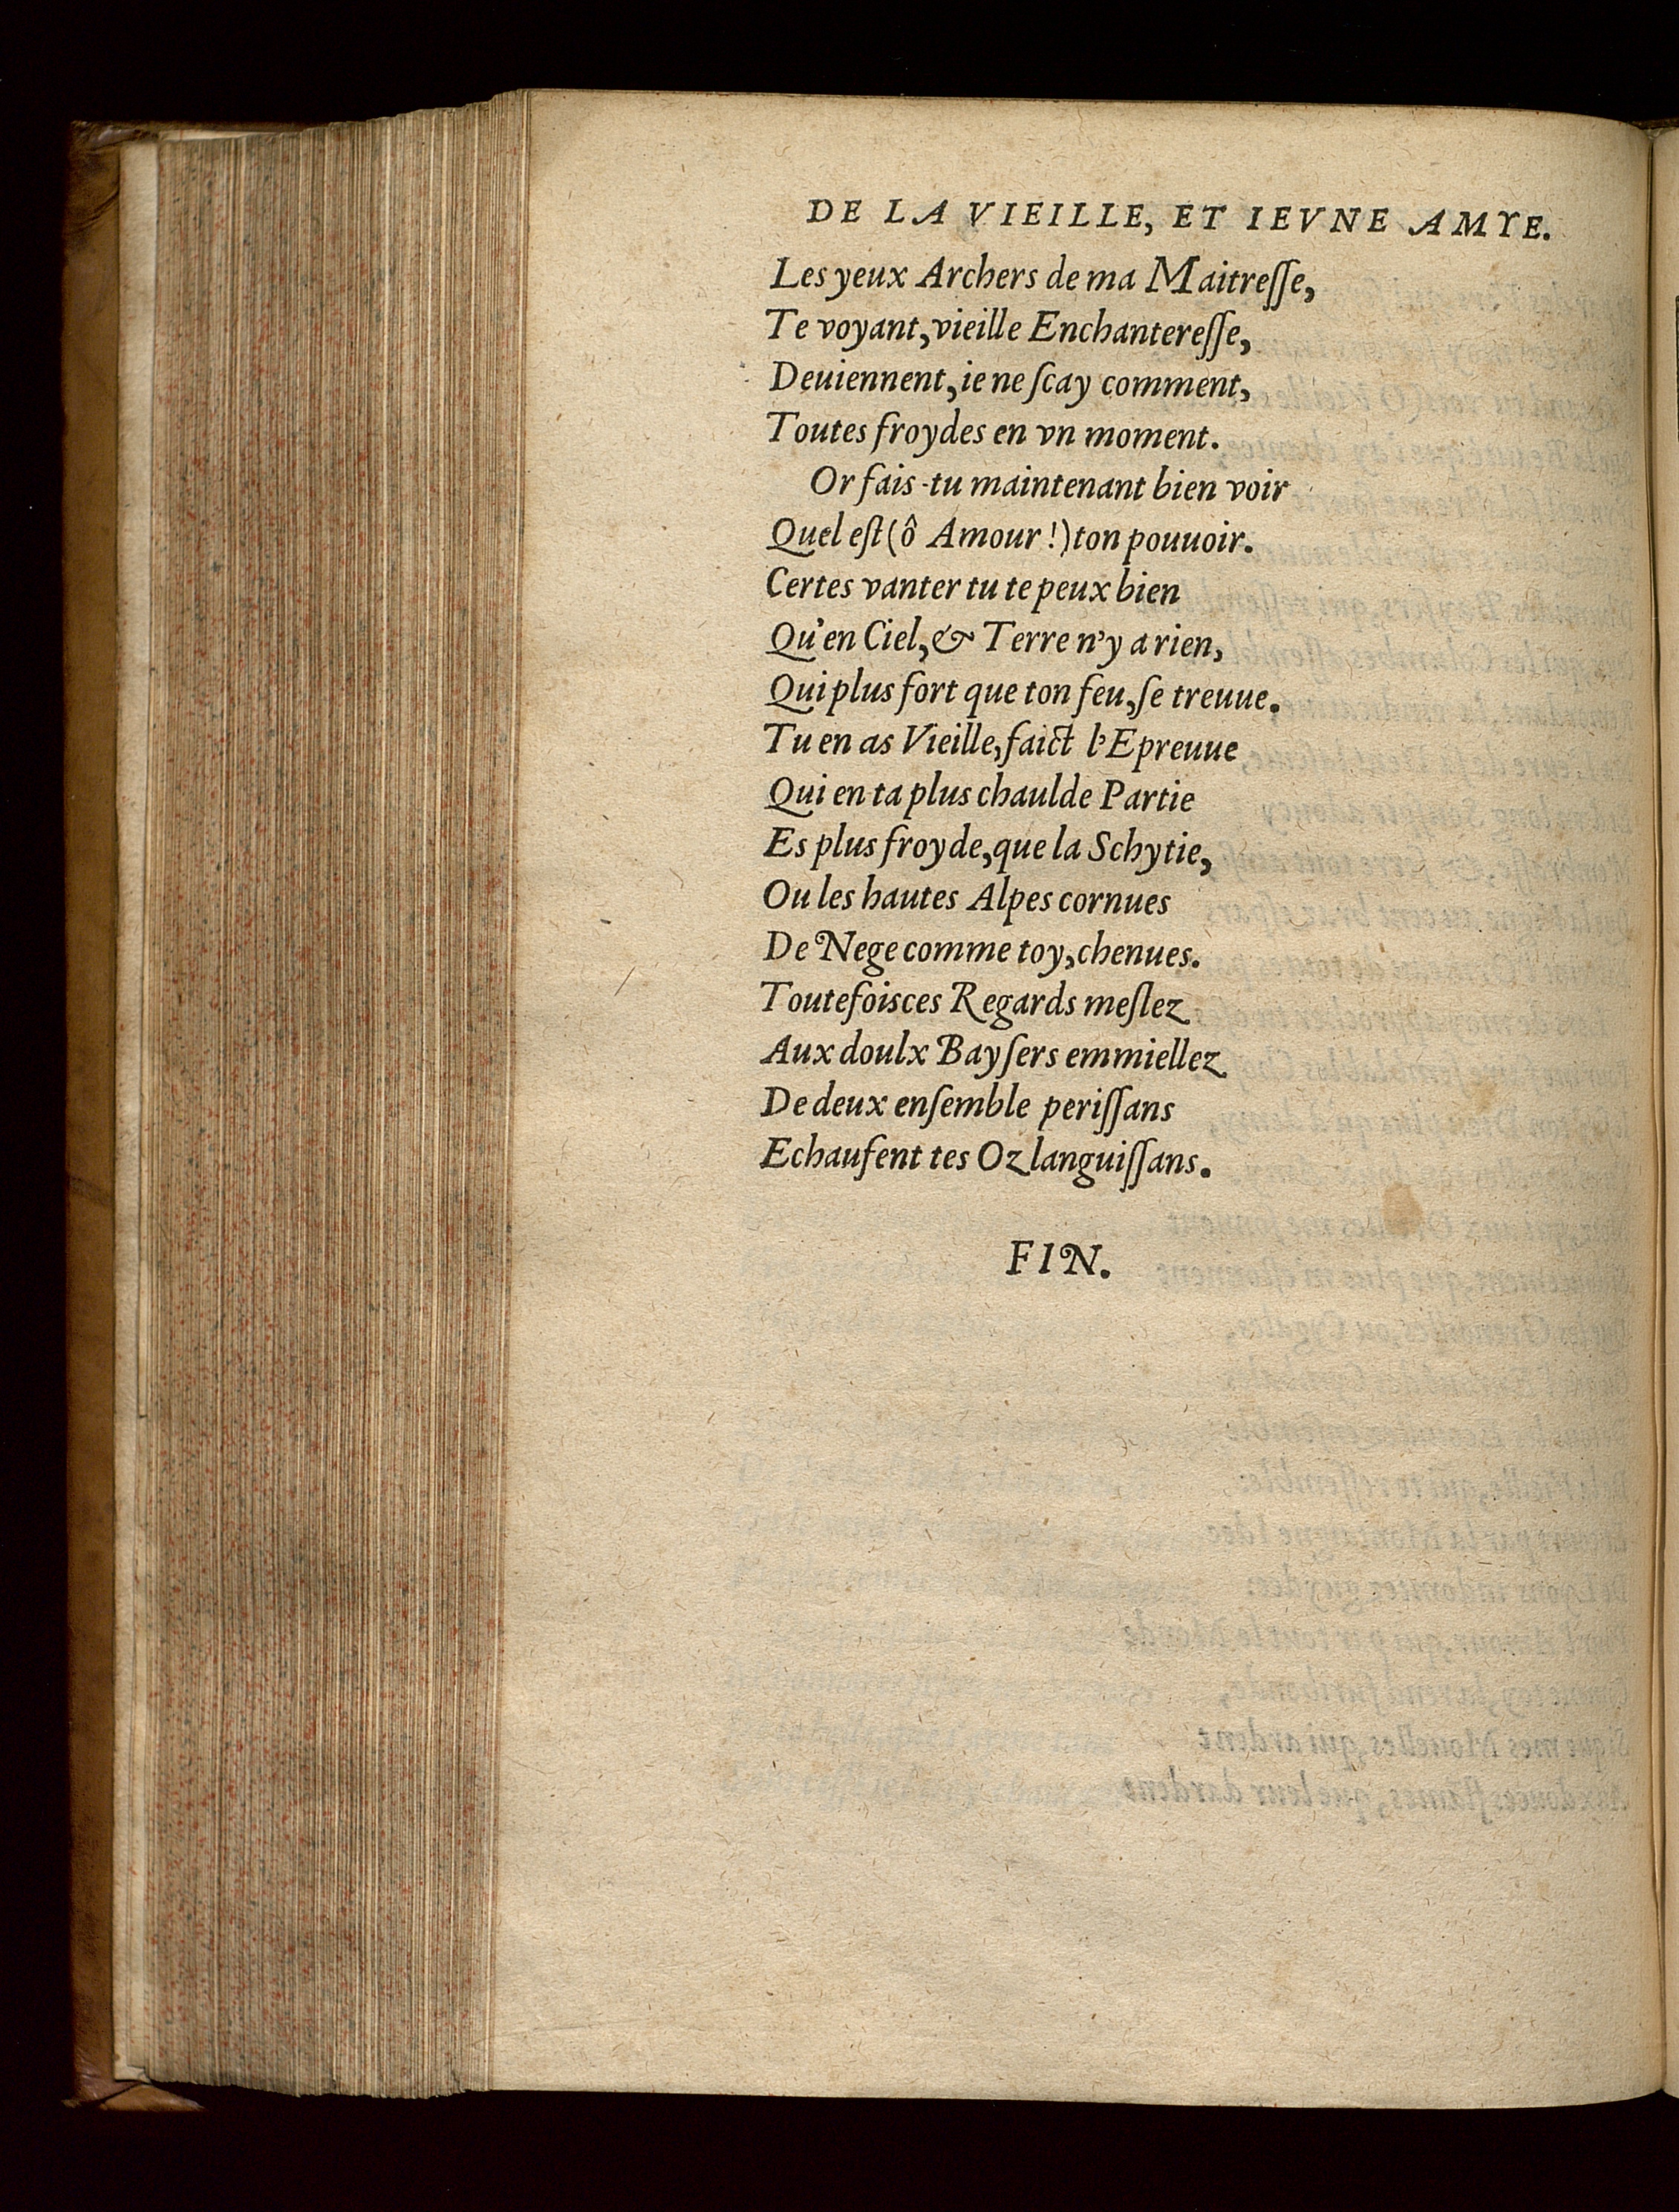 DE LA VIEILLE, ET IEVNE AMYE.
Les yeux Archers de ma Maitreſſe,
Te voyant, vieille Enchantereſſe,
Deuiennent, ie ne ſcay comment,
Toutes froydes en vn moment.
Or fais-tu maintenant bien voir
Quel eſt (ô Amour !) ton pouuoir.
Certes vanter tu te peux bien
Qu'en Ciel, & Terre n'y a rien,
Qui plus fort que ton feu, ſe treuue.
Tu en as Vieille, faict l'Epreuue
Qui en ta plus chaulde Partie
Es plus froyde, que la Schytie,
Ou les hautes Alpes cornues
De Nege comme toy, chenues.
Toutefoisces Regards meſlez
Aux doulx Bayſers emmiellez
De deux enſemble periſſans
Echaufent tes Oz languiſſans.
FIN.